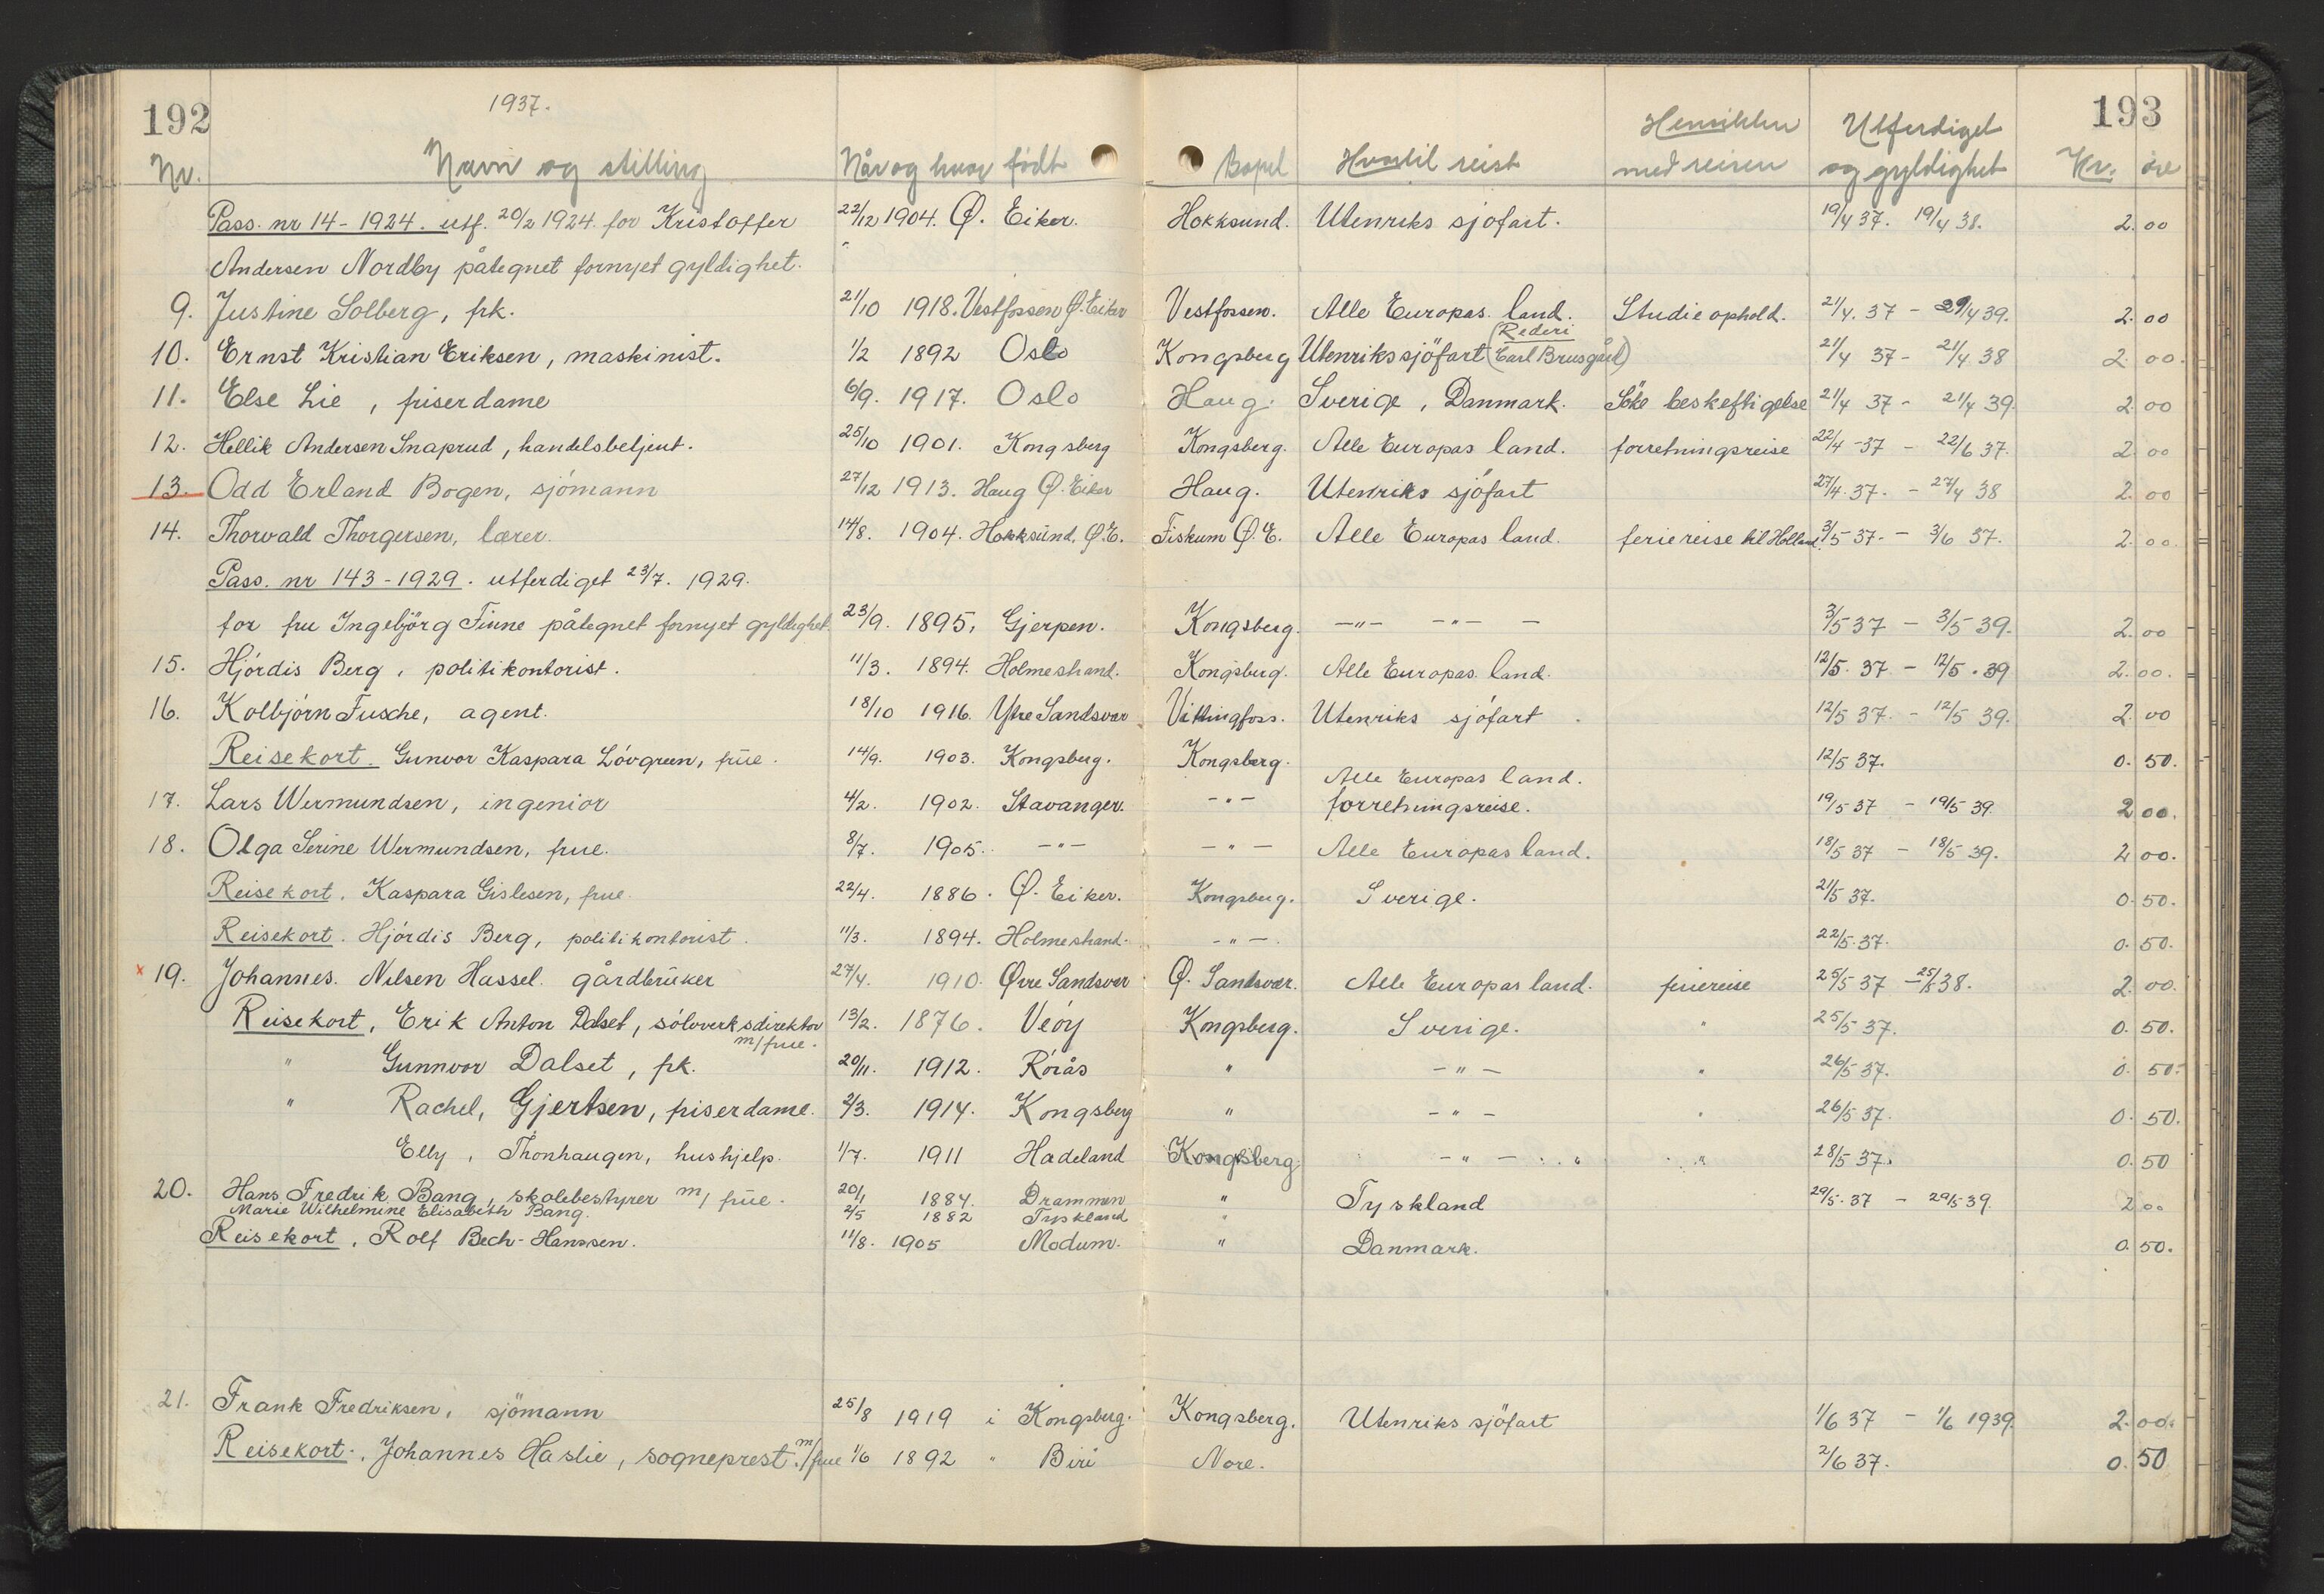 192 1937. 193
Nr. Navn og stilling Når og hvor født Bopel Hvortil reist Hensikten med reisen Utferdiget og gyldighet Kr. øre
Pass. nr 14 - 1924. utf. 20/2 1924. for Kristoffer 22/12 1904. Ø. Eiker. Hokksund. Utenriks sjøfart. 19/4 37. 19/4 38. 2. 00
Andersen Nordby påtegnet fornyet gyldighet.
9. Justine Solberg, frk. 21/10 1918. Vestfossen Ø. Eiker Vestfossen. Alle Europas land. Studieophold. 21/4. 37 - 21/4 39. 2. 00
10. Ernst Kristian Eriksen, maskinist. 1/2 1892 Oslo Kongsberg Utenriks sjöfart (Rederi Carl Brusgård) 21/4 37 - 21/4 38 2. 00.
11. Else Lie, friserdame 6/9. 1917. Oslo Haug. Sverige, Danmark. Söke beskeftigelse 21/4 37 - 21/4 39 2. 00
12. Hellik Andersen Snaprud, handelsbetjent. 25/10 1901. Kongsberg Kongsberg. Alle Europas land. forretningsreise 22/4 -37 - 22/6 37. 2. 00
13. Odd Erland Bogen, sjömann 27/12 1913. Haug Ø. Eiker Haug. Utenriks sjöfart 27/4. 37. - 27/4 38 2. 00
14. Thorvald Thorgersen, lærer. 14/8. 1904. Hokksund, Ø.E. Fiskum Ø.E. Alle Europas land. feriereise til Holland 3/5 37. - 3/6 37. 2. 00.
Pass. nr 143 - 1929. utferdiget 23/7. 1929.
for fru Ingebjörg Tinne påtegnet fornyet gyldighet. 23/9. 1895, Gjerpen. Kongsberg. -"- -"- - 3/5 37 - 3/5 39. 2. 00
15. Hjórdis Berg, politikontorist. 11/3. 1894. Holmestrand. Kongsberg. Alle Europas land. 12/5. 37 - 12/5. 39 2. 00.
16. Kolbjórn Fusche, agent. 18/10 1916. Ytre Sandsvær Vittingfoss. Utenriks sjófart. 12/5 37. - 12/5 39. 2. 00
Reisekort. Gunvor Kaspara Lóvgreen, frue. 14/9. 1903. Kongsberg. Kongsberg. 12/5 37. 0. 50.
17. Lars Wermundsen, ingeniór 4/2. 1902. Stavanger. -"- Alle Europas land. forretningsreise. 19/5 37 - 19/5 39. 2 00.
18. Olga Serine Wermundsen, frue. 8/7. 1905. -"- -"- Alle Europas land. 18/5 37 - 18/5 39. 2 00.
Reisekort. Kaspara Gislesen, frue. 22/4. 1886. Ø. Eiker. Kongsberg. Sverige. 21/5 37. 0. 50.
Reisekort. Hjórdis Berg, politikontorist. 11/3. 1894. Holmestrand. -"-. 22/5. 37. 0. 50.
x 19. Johannes. Nilsen Hassel. gårdbruker 27/4. 1910. Øvre Sandsver Ø. Sandsvær. Alle Europas land. feriereise 25/5 37 - 25/5 38. 2. 00.
Reisekort, Erik Anton Dalset, sólvverksdirektór m/frue. 13/2. 1876. Veóy Kongsberg. Sverige. " 25/5 37. 0. 50.
" Gunnvor Dalset, frk. 20/11. 1912. Rórås " -"- " 26/5 37. 0. 50.
" Rachel, Gjertsen, friserdame. 2/3. 1914. Kongsberg " -"- " 26/5 37. 0. 50.
Elly, Thonhaugen, hushjelp. 1/7. 1911 Hadeland Kongsberg -"- " " 28/5. 37. 0. 50
20. Hans Fredrik Bang, skolebestyrer m/ frue. 20/1 1884. Drammen " Tyskland 29/5. 37 - 29/5 39. 2 00
Marie Wilhelmine Elisabeth Bang. 2/5 1882 Tyskland "
Reisekort, Rolf Bech-Hanssen. 11/8. 1905 Modum. " Danmark. 0. 50.
21. Frank Fredriksen, sjömann 25/8 1919 i Kongsberg. Kongsberg. Utenriks sjöfart 1/6 37 - 1/6 1939. 2. 00.
Reisekort. Johannes Haslie, sogneprest. m/frue 1/6 1892 " Biri Nore. 2/6 37. 0. 50